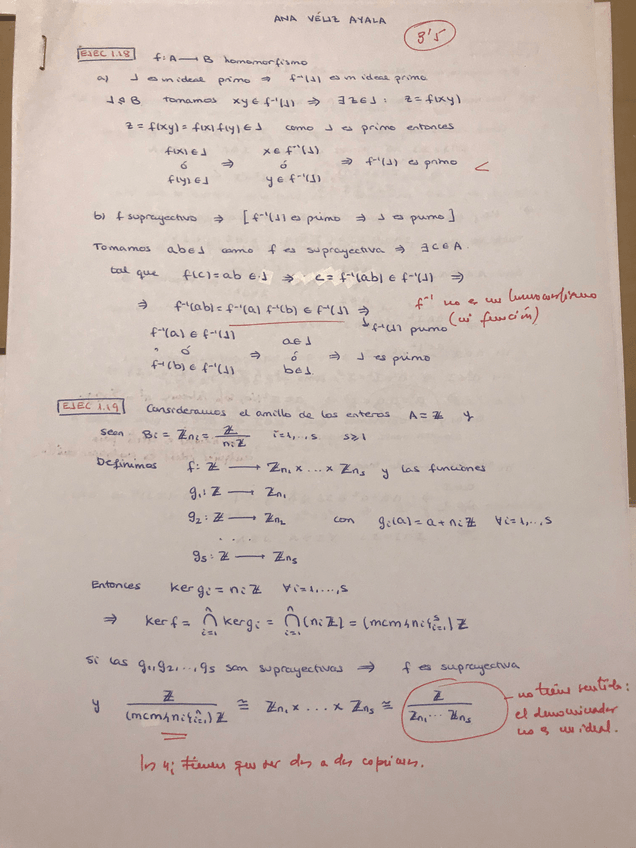 ANA VÉLIZ AYALA
8'5
EJEC 1.18 f: A → B homomorfismo
a) J es un ideal primo ⇒ f⁻¹(J) es un ideal primo
J ⊴ B Tomamos xy ∈ f⁻¹(J) ⇒ ∃ z ∈ J : z = f(xy)
z = f(xy) = f(x) f(y) ∈ J como J es primo entonces
f(x) ∈ J x ∈ f⁻¹(J)
ó ⇒ ó ⇒ f⁻¹(J) es primo
f(y) ∈ J y ∈ f⁻¹(J)
b) f suprayectivo ⇒ [ f⁻¹(J) es primo ⇒ J es primo ]
Tomamos ab ∈ J como f es suprayectiva ⇒ ∃ c ∈ A
tal que f(c) = ab ∈ J ⇒ c = f⁻¹(ab) ∈ f⁻¹(J) ⇒
⇒ f⁻¹(ab) = f⁻¹(a) f⁻¹(b) ∈ f⁻¹(J) ⇒
f⁻¹ no es un homomorfismo
(ni función)
↓ f⁻¹(J) primo
f⁻¹(a) ∈ f⁻¹(J) a ∈ J
ó ⇒ ó ⇒ J es primo
f⁻¹(b) ∈ f⁻¹(J) b ∈ J
EJEC 1.19 Consideramos el anillo de los enteros A = ℤ y
sean Bi = ℤni = ℤ/niℤ i=1,..,s s≥1
Definimos f: ℤ → ℤn1 × ... × ℤns y las funciones
g1: ℤ → ℤn1
g2: ℤ → ℤn2 con gi(a) = a + niℤ ∀i=1,..,s
. . .
gs: ℤ → ℤns
Entonces ker gi = niℤ ∀i=1,...,s
⇒ ker f = ⋂ᵢ₌₁ⁿ ker gi = ⋂ᵢ₌₁ⁿ (niℤ) = (mcm{ni}ᵢ₌₁ˢ)ℤ
Si las g1,g2,...,gs son suprayectivas ⇒ f es suprayectiva
y ℤ/(mcm{ni}ᵢ₌₁ⁿ)ℤ ≅ ℤn1 × ... × ℤns ≅ ℤ/ℤn1...ℤns
no tiene sentido:
el denominador
no es un ideal.
los ni tienen que ser dos a dos coprimos.